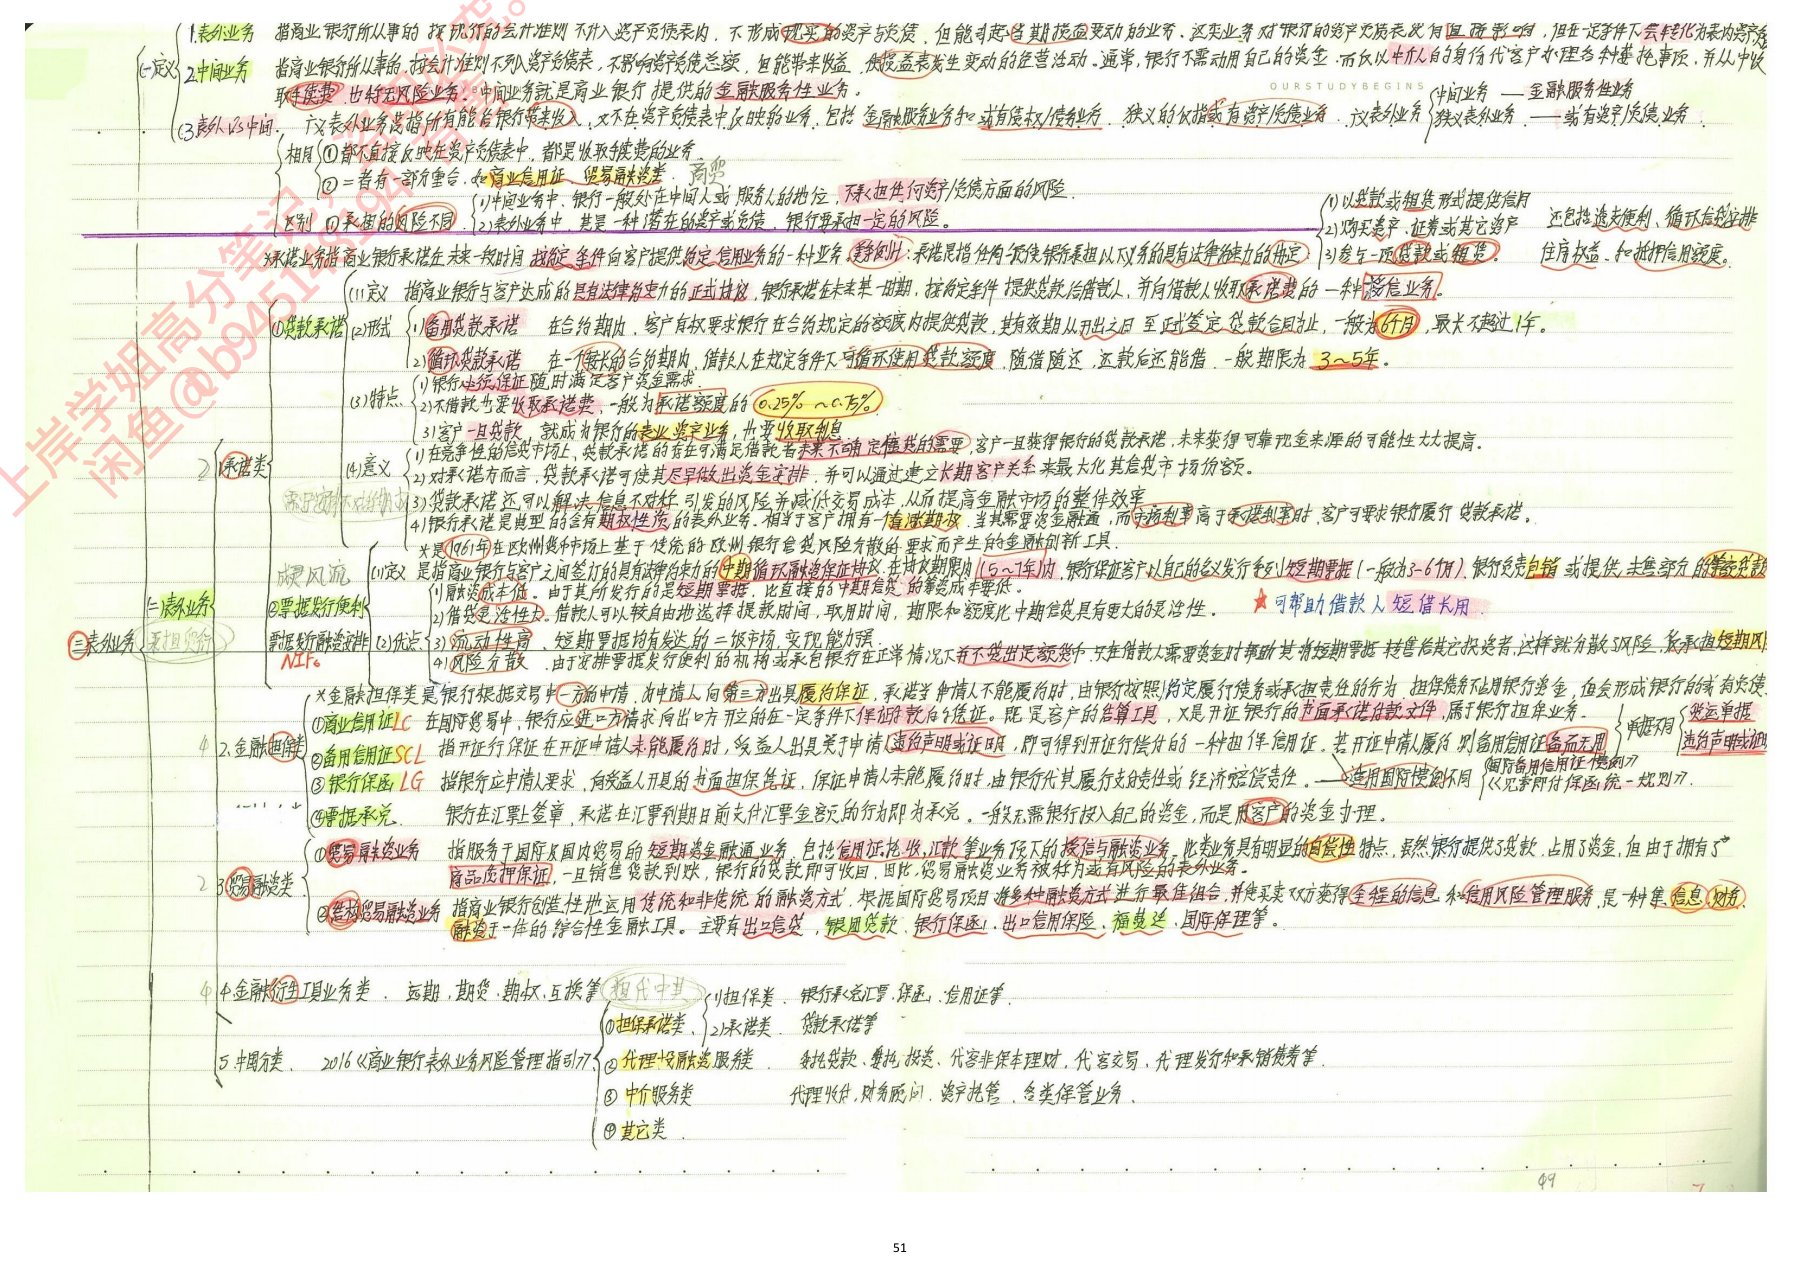 1.表外业务 指商业银行所从事的 按现行的会计准则 不计入资产负债表内, 不形成现实的资产与负债, 但能引起当期损益变动的业务. 这类业务对银行的资产负债表没有直接影响, 但在一定条件下会转化为表内资产负
(一)定义 2.中间业务 指商业银行所从事的, 按会计准则不列入资产负债表, 不影响资产负债总额, 但能带来收益, 使损益表发生变动的经营活动。通常, 银行不需动用自己的资金, 而仅以中介人的身份代客户办理各种委托事项, 并从中收
取手续费, 也称无风险业务. 中间业务就是商业银行提供的金融服务性业务。
OURSTUDYBEGINS
中间业务 — 金融服务性业务
(3)表外vs中间. 广义表外业务是指所有能给银行带来收入, 又不在资产负债表中反映的业务, 包括 金融服务业务和或有债权/债务业务. 狭义的仅指或有资产/负债业务. 广义表外业务 狭义表外业务 —— 或有资产/负债业务.
相同 ①都不直接反映在资产负债表中, 都是收取手续费的业务.
②二者有一部分重合, 如商业信用证、贸易融资类. 商贸
区别 ①承担的风险不同 (1)中间业务中、银行一般处在中间人或服务人的地位, 不承担任何资产/负债方面的风险.
(2)表外业务中, 其是一种潜在的资产或负债, 银行要承担一定的风险。
(1)以贷款或租赁形式提供信用
2)购买资产、证券或其它资产 还包括透支便利、循环信贷安排
*承诺业务指商业银行承诺在未来一段时间 按约定条件向客户提供约定信用业务的一种业务. 美会计: 承诺是指任何一项使银行承担以下义务的具有法律约束力的协定 3)参与一项贷款或租赁。 住房权益、和抵押信用额度。
(二)表外业务
承担贸衍
2 ①承诺类
①贷款承诺 (1)定义 指商业银行与客户达成的具有法律约束力的正式协议, 银行承诺在未来某一时期, 按约定条件提供贷款给借款人, 并向借款人收取承诺费的一种授信业务。
(2)形式 1)备用贷款承诺 在合约期内, 客户有权要求银行在合约规定的额度内提供贷款, 其有效期从开出之日至正式签定贷款合同为止, 一般为6个月, 最长不超过1年。
2)循环贷款承诺 在一个较长的合约期内, 借款人在规定条件下可循环使用贷款额度, 随借随还, 还款后还能借. 一般期限为 3~5年。
(3)特点 (1)银行必须保证随时满足客户资金需求.
2)不借款也要收取承诺费, 一般为承诺额度的 0.25%~0.75%.
3)客户一旦贷款 就成为银行的表业资产业务, 也要收取利息
(4)意义 1)在竞争性的信贷市场上, 贷款承诺的存在可满足借款者未来不确定信贷的需要, 客户一旦获得银行的贷款承诺, 未来获得可靠现金来源的可能性大大提高.
2)对承诺方而言, 贷款承诺可使其尽早做出资金安排, 并可以通过建立长期客户关系来最大化其信贷市场份额。
3)贷款承诺还可以解决信息不对称引发的风险并减低交易成本, 从而提高金融市场的整体效率
4)银行承诺是典型的含有期权性质的表外业务. 相当于客户拥有一个看涨期权. 当其需要资金融通, 而市场利率高于承诺利率时, 客户可要求银行履行贷款承诺。
*是1961年在欧洲货币市场上基于传统的欧洲银行信贷风险分散的要求而产生的金融创新工具.
成灵风流
②票据发行便利 (1)定义 是指商业银行与客户之间签订的具有法律约束力的中期循环融资保证协议, 在协议期限内(5~7年)内, 银行保证客户以自己的名义发行系列短期票据(一般为3-6个月), 银行负责包销或提供未售部分的等额贷款
1)融资成本低。由于其所发行的是短期票据, 比直接的中期信贷的筹资成本要低.
2)借贷灵活性大。借款人可以较自由地选择提款时间, 取用时间, 期限和额度比中期信贷具有更大的灵活性. ★可帮助借款人短借长用
(三)表外业务 票据发行融资安排 (2)优点 3)流动性高 短期票据均有发达的二级市场, 变现能力强.
NIFs 4)风险分散 由于安排票据发行便利的机构或承包银行在正常情况下并不贷出足额货币. 只在借款人需要资金时帮助其将短期票据转售给其它投资者, 这样就分散了风险, 仅承担短期风险
*金融担保类是银行根据交易中一方的申请, 为申请人向第三方出具履约保证, 承诺当申请人不能履约时, 由银行按照约定履行债务或承担责任的行为, 担保债务不占用银行资金, 但会形成银行的或有负债.
4 2.金融担保类 ①商业信用证LC 在国际贸易中, 银行应进口方请求向出口方开立的在一定条件下保证付款的凭证。既是客户的结算工具, 又是开证银行的书面承诺付款文件, 属于银行担保业务. 单据不同 货运单据
②备用信用证SCL 指开证行保证在开证申请人未能履约时, 受益人出具关于申请人违约声明或证明, 即可得到开证行偿付的一种担保信用证. 若开证申请人履约 则备用信用证备而无用 违约声明或证明
③银行保函LG 指银行应申请人要求, 向受益人开具的书面担保凭证, 保证申请人未能履约时, 由银行代其履行支付责任或经济赔偿责任. — 适用国际惯例不同 《国际备用信用证惯例》
《见索即付保函统一规则》
④票据承兑. 银行在汇票上签章, 承诺在汇票到期日前支付汇票金额的行为即为承兑. 一般无需银行投入自己的资金, 而是用客户的资金办理.
2 3.贸易融资类 ①贸易融资业务 指服务于国际及国内贸易的短期资金融通业务, 包括信用证, 托收, 汇款等业务项下的授信与融资业务, 此类业务具有明显的自偿性特点, 虽然银行提供了贷款, 占用了资金, 但由于拥有了
商品质押保证, 一旦销售货款到账, 银行的贷款即可收回, 因此, 贸易融资业务被称为或有风险的表外业务.
②结构贸易融资业务 指商业银行创造性地运用传统和非传统的融资方式, 根据国际贸易项目 将多种融资方式进行最佳组合, 并使买卖双方获得全程的信息和信用风险管理服务, 是一种集信息、财务、
融资于一体的综合性金融工具。主要有出口信贷, 银团贷款、银行保函、出口信用保险、福费廷、国际保理等。
4 4.金融衍生工具业务类. 远期, 期货, 期权, 互换等 担代中其
5.中国分类. 2016《商业银行表外业务风险管理指引》
①担保承诺类. 1)担保类. 银行承兑汇票, 保函, 信用证等.
2)承诺类. 贷款承诺等
②代理投融资服务类 委托贷款、委托投资、代客非保本理财, 代客交易, 代理发行和承销债券等.
③中介服务类 代理收付, 财务顾问, 资产托管、各类保管业务.
④其它类.
49
51
上岸学姐高分笔记
闲鱼@b94511694